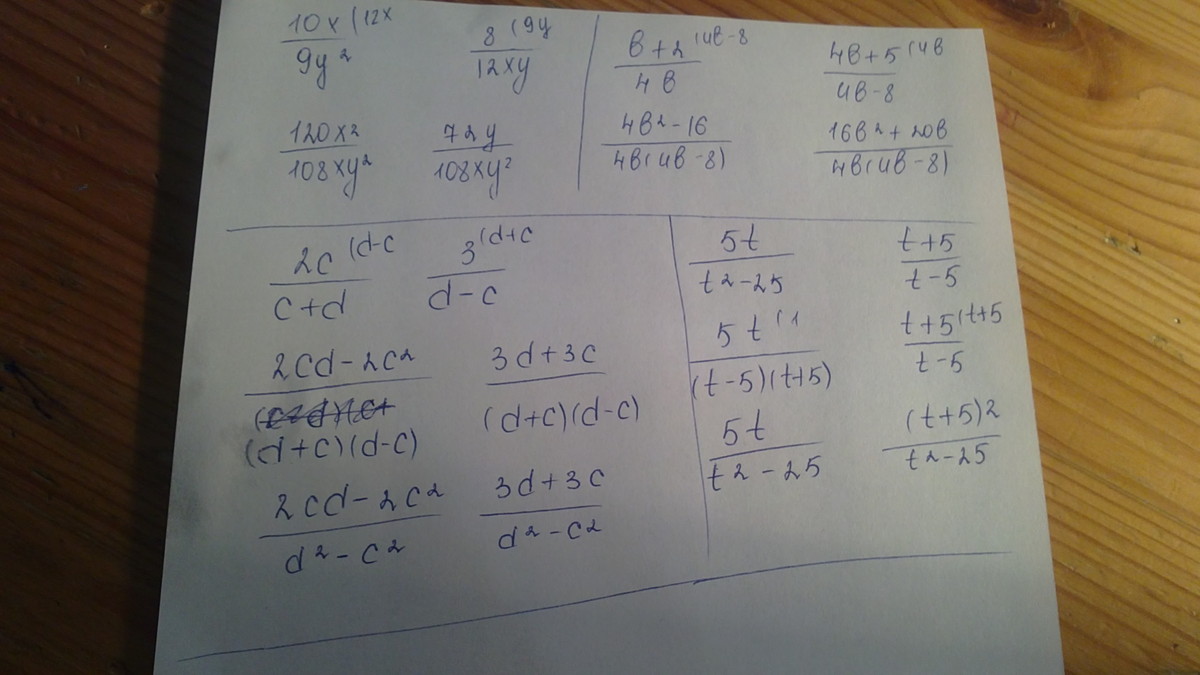 10x (12x / 9y²    8 (9y / 12xy
120x² / 108xy²    72y / 108xy²
b+2 (4b-8 / 4b    4b+5 (4b / 4b-8
4b²-16 / 4b(4b-8)    16b²+20b / 4b(4b-8)
2c (d-c / c+d    3 (d+c / d-c
2cd-2c² / (d+c)(d-c)    3d+3c / (d+c)(d-c)
2cd-2c² / d²-c²    3d+3c / d²-c²
5t / t²-25    t+5 / t-5
5t (1 / (t-5)(t+5)    t+5 (t+5 / t-5
5t / t²-25    (t+5)2 / t²-25